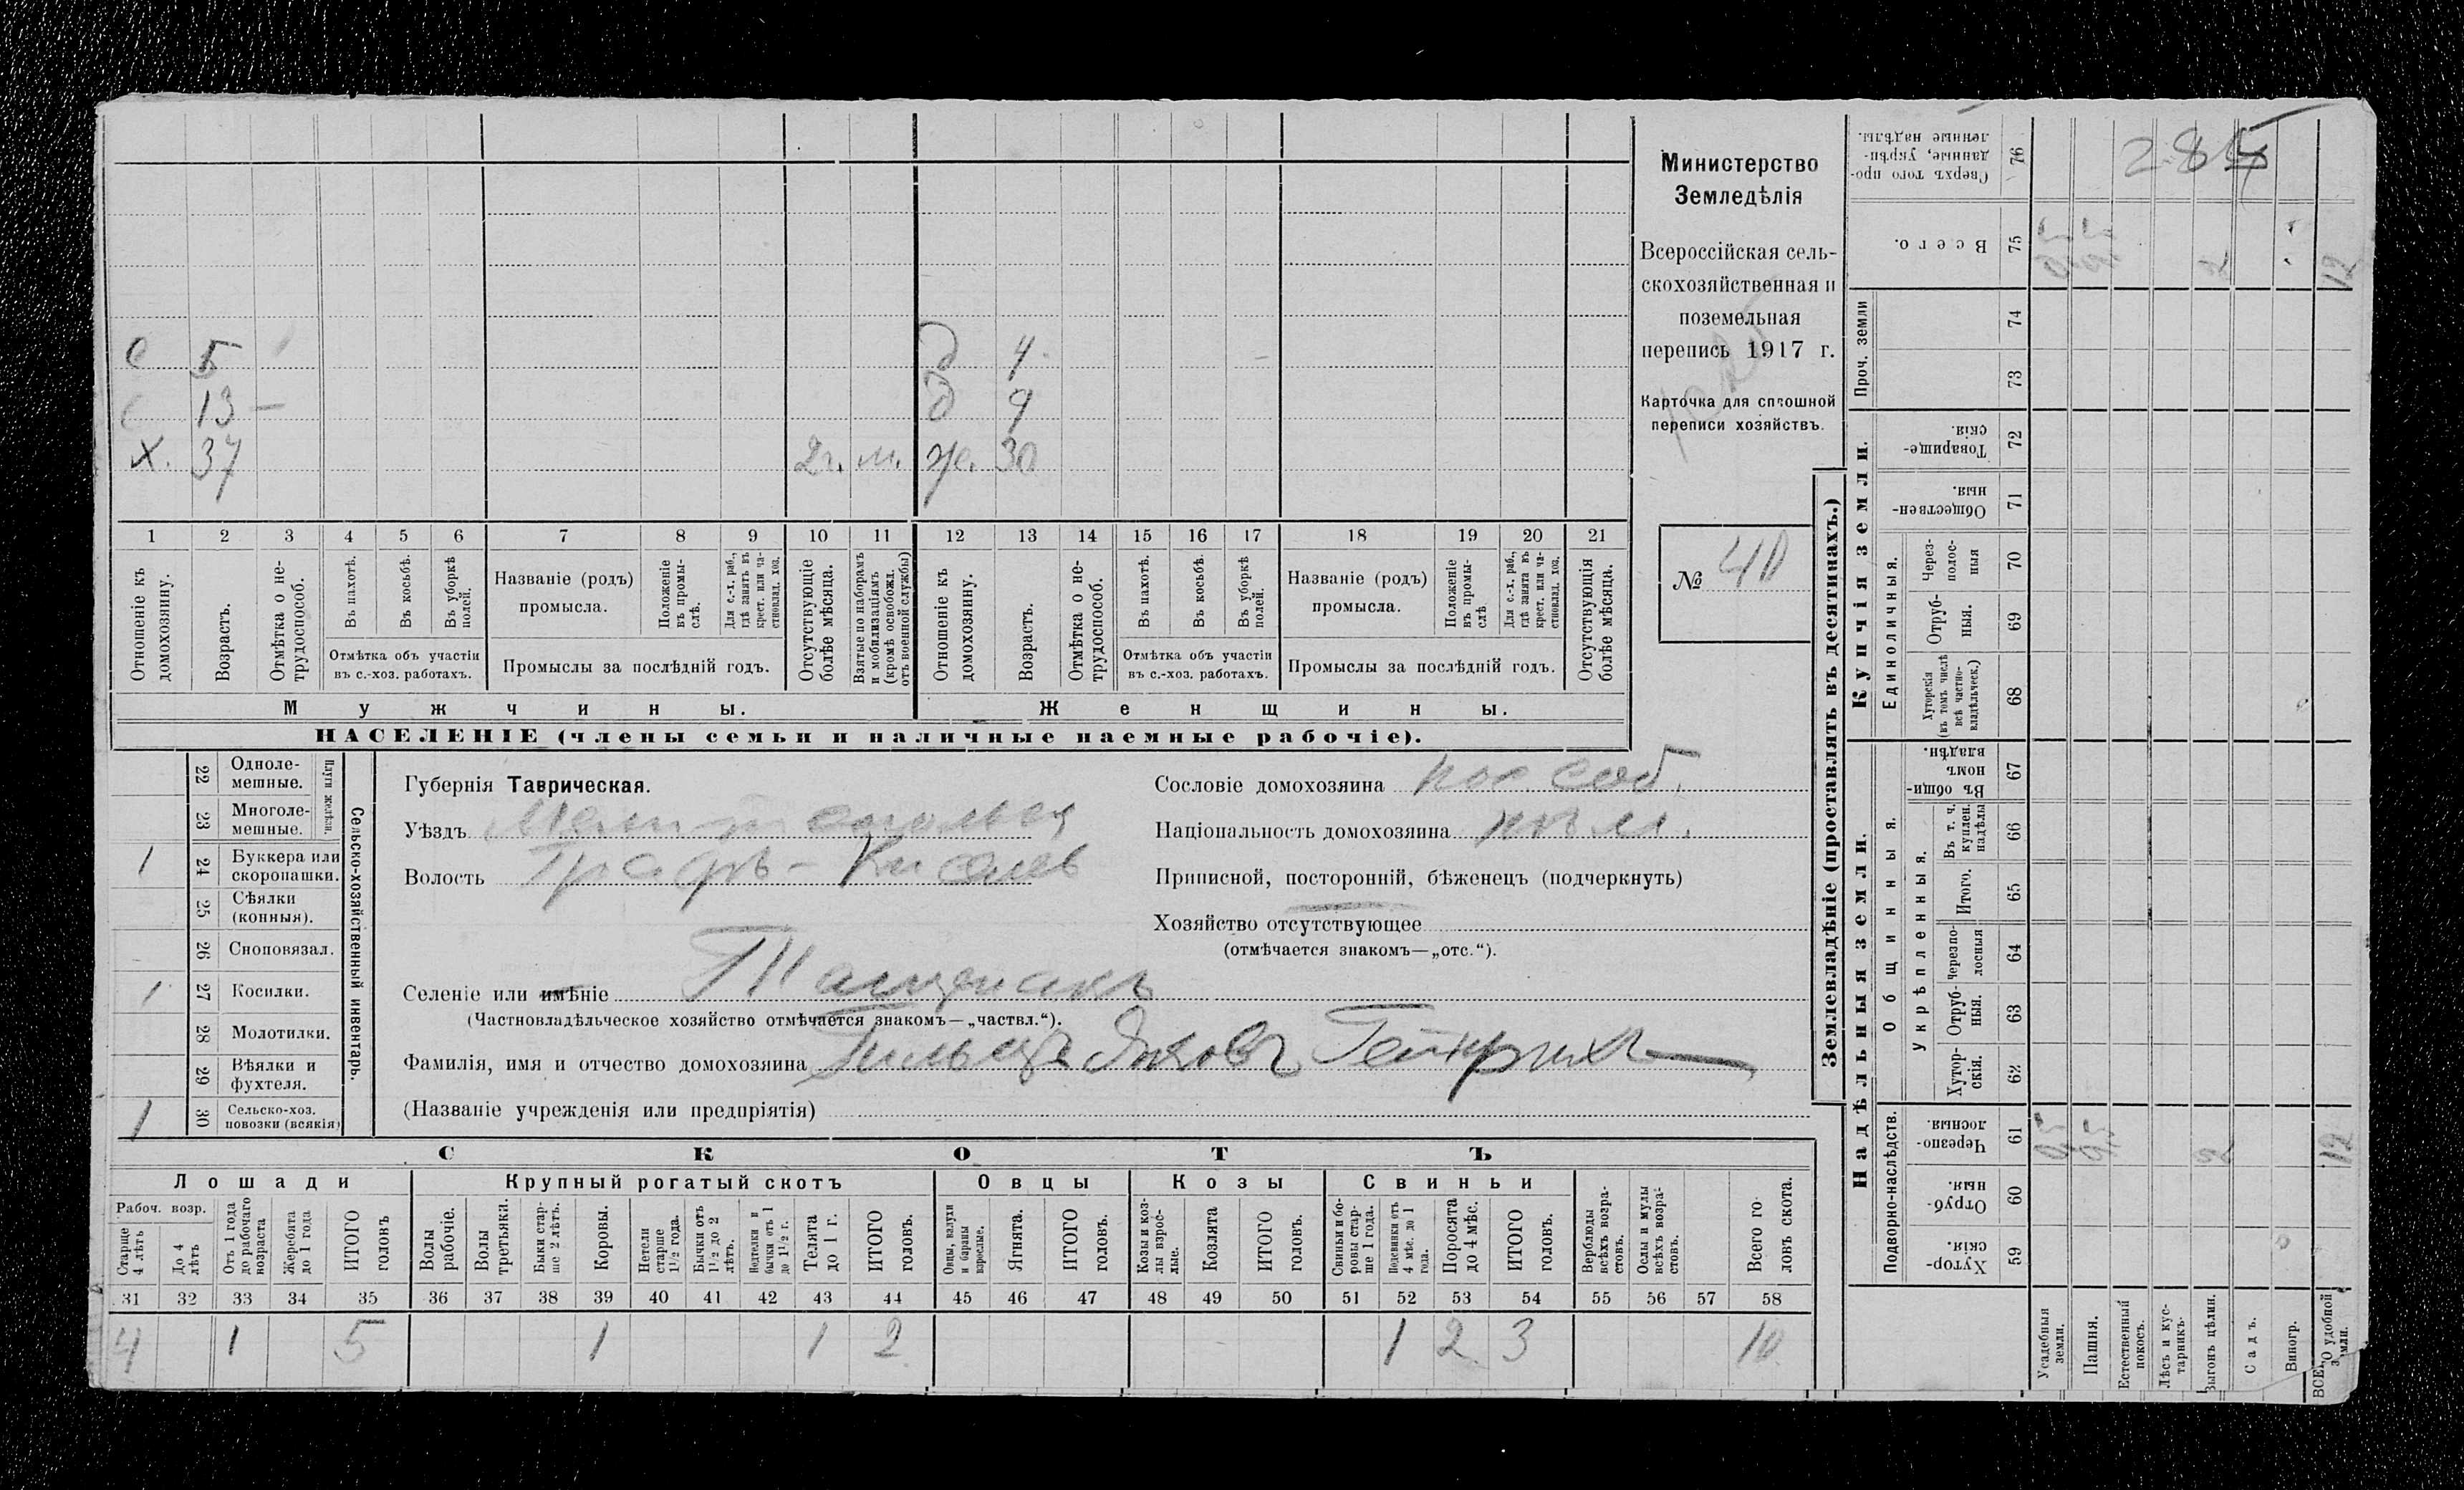 Министерство
Земледѣлія
Всероссійская сель-
скохозяйственная и
поземельная
перепись 1917 г.
Карточка для сплошной
переписи хозяйствъ.
№ 40
285
С 5 д 4
С 13 — д 9
Х. 37 2 г. м. ж. 30
1 2 3 4 5 6 7 8 9 10 11 12 13 14 15 16 17 18 19 20 21
Отношеніе къ домохозяину.
Возрастъ.
Отмѣтка о не-трудоспособ.
Въ пахотѣ.
Въ косьбѣ.
Въ уборкѣ полей.
Отмѣтка объ участіи
въ с.-хоз. работахъ.
Названіе (родъ)
промысла.
Положеніе въ промы-слѣ.
Для с.-х. раб., гдѣ занятъ въ крест. или ча-стновлад. хоз.
Промыслы за послѣдній годъ.
Отсутствующіе болѣе мѣсяца.
Взятые по наборамъ и мобилизаціямъ (кромѣ освобожд. отъ военной службы)
Отношеніе къ домохозяину.
Возрастъ.
Отмѣтка о не-трудоспособ.
Въ пахотѣ.
Въ косьбѣ.
Въ уборкѣ полей.
Отмѣтка объ участіи
въ с.-хоз. работахъ.
Названіе (родъ)
промысла.
Положеніе въ промы-слѣ.
Для с.-х. раб., гдѣ занята въ крест. или ча-стновлад. хоз.
Промыслы за послѣдній годъ.
Отсутствующія болѣе мѣсяца.
Мужчины. Женщины.
НАСЕЛЕНІЕ (члены семьи и наличные наемные рабочіе).
22 Одноле-мешные.
23 Многоле-мешные.
Плуги желѣзн.
1 24 Буккера или скоропашки.
25 Сѣялки (конныя).
26 Сноповязал.
1 27 Косилки.
28 Молотилки.
29 Вѣялки и фухтеля.
1 30 Сельско-хоз. повозки (всякія)
Сельско-хозяйственный инвентарь.
Губернія Таврическая.
Уѣздъ Мелитопольск
Волость Графъ-Киселев
Селеніе или имѣніе Тащенакъ
(Частновладѣльческое хозяйство отмѣчается знакомъ—„частвл.“).
Фамилія, имя и отчество домохозяина Гильцъ Яковъ Гейнрих
(Названіе учрежденія или предпріятія)
Сословіе домохозяина пос соб.
Національность домохозяина
Приписной, посторонній, бѣженецъ (подчеркнуть)
Хозяйство отсутствующее
(отмѣчается знакомъ—„отс.“).
СКОТЪ
Лошади Крупный рогатый скотъ Овцы Козы Свиньи
Рабоч. возр.
Старше 4 лѣтъ
До 4 лѣтъ
Отъ 1 года до рабочаго возраста
Жеребята до 1 года
ИТОГО головъ
Волы рабочіе.
Волы третьяки.
Быки стар-ше 2 лѣтъ.
Коровы.
Нетели старше 1½ года.
Бычки отъ 1½ до 2 лѣтъ.
Нетелки и бычки отъ 1 до 1½ г.
Телята до 1 г.
ИТОГО головъ.
Овцы, валухи и бараны взрослые.
Ягнята.
ИТОГО головъ.
Козы и коз-лы взрос-лые.
Козлята
ИТОГО головъ.
Свиньи и бо-ровы стар-ше 1 года.
Подсвинки отъ 4 мѣс. до 1 года.
Поросята до 4 мѣс.
ИТОГО головъ.
Верблюды всѣхъ возра-стовъ.
Ослы и мулы всѣхъ возра-стовъ.
Всего го-ловъ скота.
31 32 33 34 35 36 37 38 39 40 41 42 43 44 45 46 47 48 49 50 51 52 53 54 55 56 57 58
4 1 5 1 1 2 1 2 3 10
Землевладѣніе (проставлять въ десятинахъ.)
Купчія земли.
Надѣльныя земли.
Сверхъ того про-данные, укрѣп-ленные надѣлы. 76
Всего. 75 2 12
Проч. земли 74 73
Товарище-скія. 72
Обществен-ныя. 71
Единоличныя.
Через-полос-ныя 70
Отруб-ныя. 69
Хуторскія (въ томъ числѣ всѣ частно-владѣльческ.) 68
Общинныя.
Въ общи-номъ владѣн. 67
Укрѣпленныя.
Въ т. ч. куплен. надѣлы 66
Итого. 65
Черезпо-лосныя 64
Отруб-ныя. 63
Хутор-скія. 62
Подворно-наслѣдств.
Черезпо-лосныя. 61 2 12
Отруб-ныя. 60
Хутор-скія. 59
Усадебныя земли.
Пашня.
Естественный покосъ.
Лѣсъ и кус-тарникъ.
Выгонъ цѣлин.
Садъ.
Виногр.
ВСЕГО удобной земли.